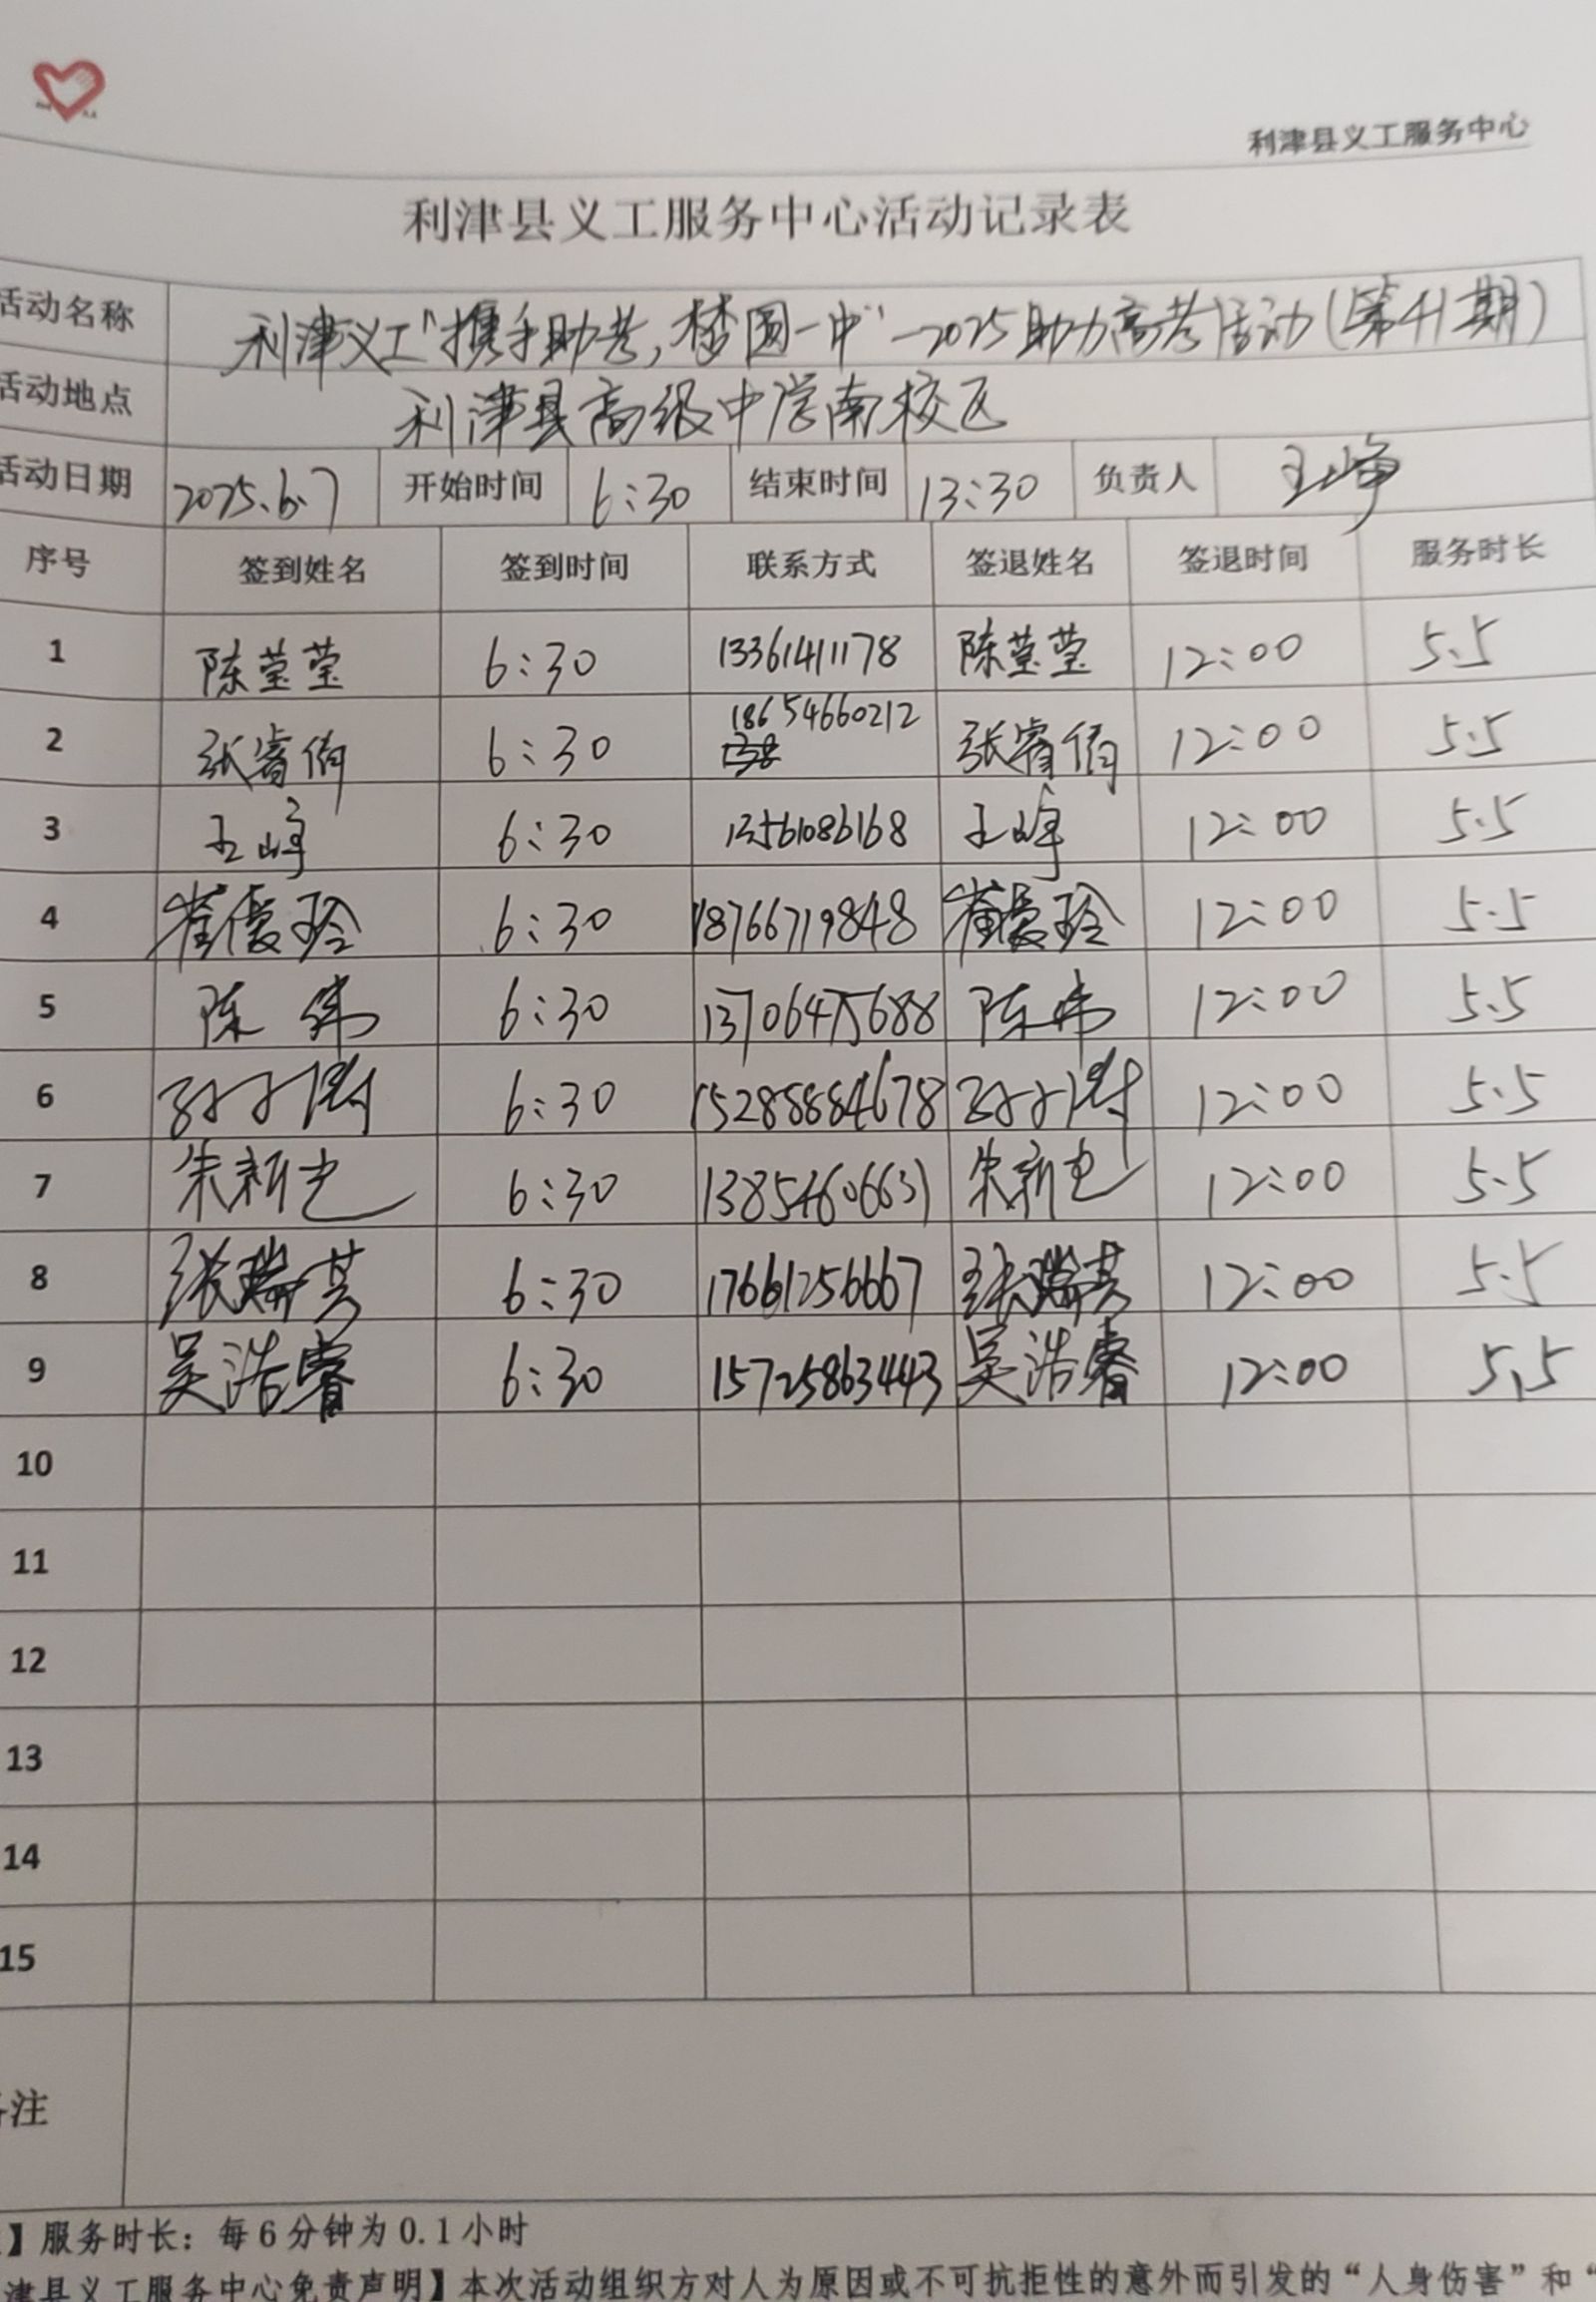 利津县义工服务中心
利津县义工服务中心活动记录表
活动名称 利津义工"携手助考,梦圆一中"—2025助力高考活动(第41期)
活动地点 利津县高级中学南校区
活动日期 2025.6.7 开始时间 6:30 结束时间 13:30 负责人 王峥
序号 签到姓名 签到时间 联系方式 签退姓名 签退时间 服务时长
1 陈莹莹 6:30 13361411178 陈莹莹 12:00 5.5
2 张睿倩 6:30 18654660212 张睿倩 12:00 5.5
3 王峥 6:30 13561086168 王峥 12:00 5.5
4 崔优玲 6:30 18766719848 崔玲 12:00 5.5
5 陈伟 6:30 13706475688 陈伟 12:00 5.5
6 6:30 15285884678 12:00 5.5
7 朱新 6:30 13854606631 朱新 12:00 5.5
8 张瑞芸 6:30 17661256667 张瑞芸 12:00 5.5
9 吴浩睿 6:30 15725863443 吴浩睿 12:00 5.5
10
11
12
13
14
15
注
】服务时长：每6分钟为0.1小时
津县义工服务中心免责声明】本次活动组织方对人为原因或不可抗拒性的意外而引发的“人身伤害”和“